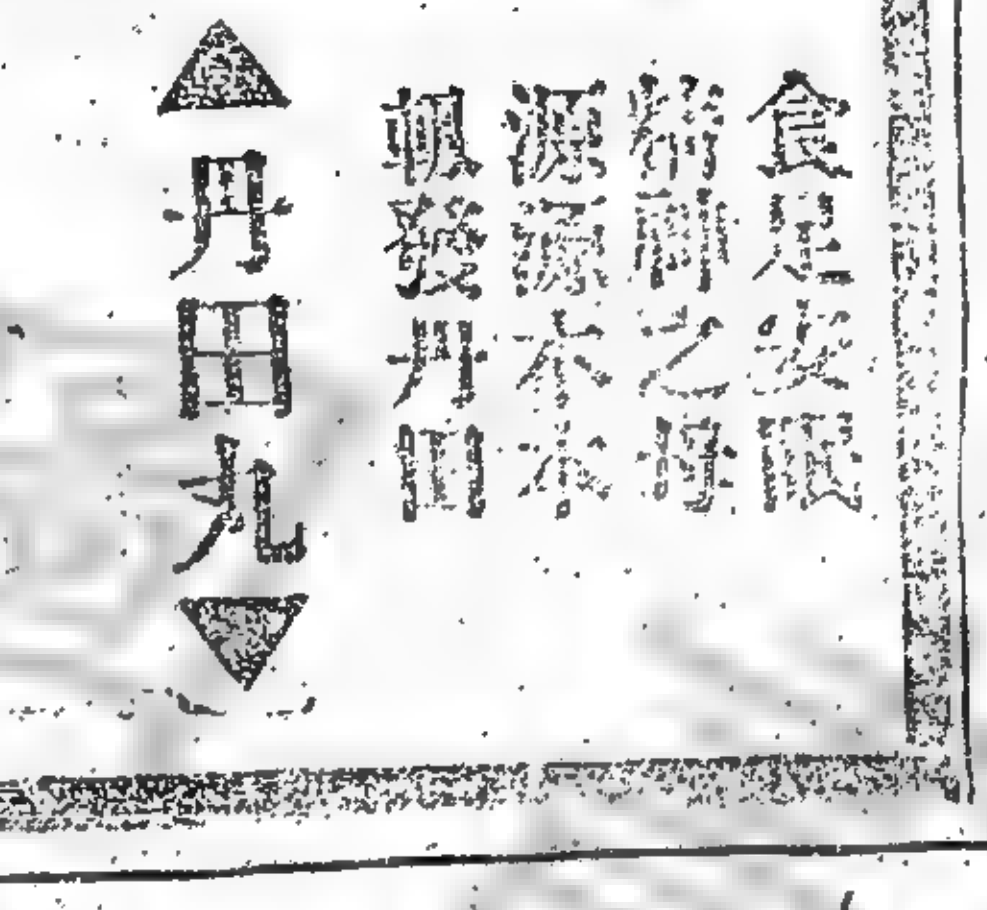 食足安眠
精神之母
源源本本
發丹田
▲丹田丸▼